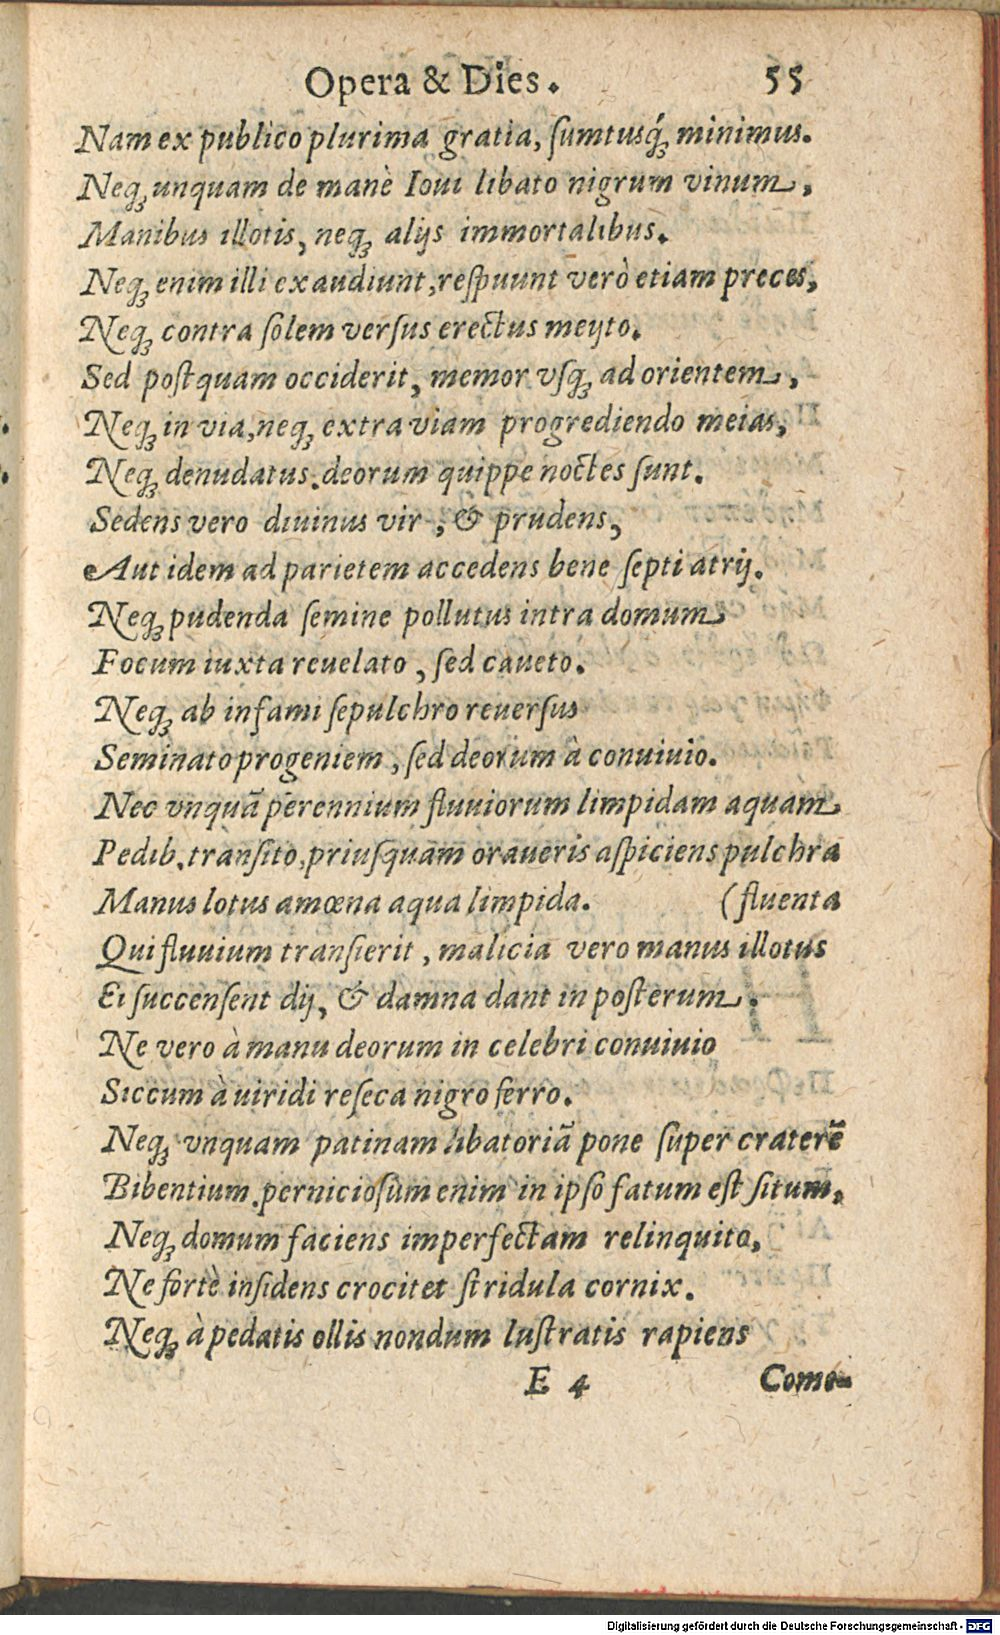 Opera & Dies. 55
Nam ex publico plurima gratia, ſumtusq́ꝫ minimus.
Neqꝫ unquam de manè Ioui libato nigrum vinum,
Manibus illotis, neqꝫ alijs immortalibus.
Neqꝫ enim illi exaudiunt, reſpuunt verò etiam preces,
Neqꝫ contra ſolem verſus erectus meijto.
Sed poſtquam occiderit, memor vſqꝫ ad orientem,
Neqꝫ in via, neqꝫ extra viam progrediendo meias,
Neqꝫ denudatus. deorum quippe noctes ſunt.
Sedens vero diuinus vir, & prudens,
Aut idem ad parietem accedens bene ſepti atrij.
Neqꝫ pudenda ſemine pollutus intra domum
Focum iuxta reuelato, ſed caueto.
Neqꝫ ab infami ſepulchro reuerſus
Seminato progeniem, ſed deorum à conuiuio.
Nec vnquã perennium fluuiorum limpidam aquam
Pedib. tranſito, priuſquam oraueris aſpiciens pulchra
Manus lotus amœna aqua limpida. (fluenta
Qui fluuium tranſierit, malicia vero manus illotus
Ei ſuccenſent dij, & damna dant in poſterum.
Ne vero à manu deorum in celebri conuiuio
Siccum à uiridi reſeca nigro ferro.
Neqꝫ vnquam patinam libatoriã pone ſuper craterẽ
Bibentium. perniciosùm enim in ipſo fatum eſt ſitum,
Neqꝫ domum faciens imperfectam relinquito,
Ne fortè inſidens crocitet ſtridula cornix.
Neqꝫ à pedatis ollis nondum luſtratis rapiens
E 4 Come-
Digitalisierung gefördert durch die Deutsche Forschungsgemeinschaft - DFG